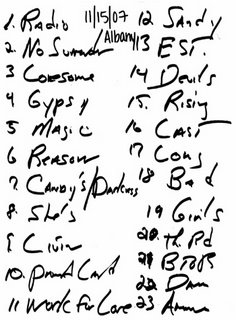 11/15/07
Albany
1. Radio
2. No Surren
3 Lonesome
4 Gypsy
5 Magic
6 Reason
7. Candy's/Darkness
8. She's
9. Livin
10. Land
11 Work For Love
12 Sandy
13 E ST.
14 Devils
15. Rising
16 Last
17 Long
18 Bad
19 Girls
20. Th. Rd
21 BTOR
22 Dan
23 Amer